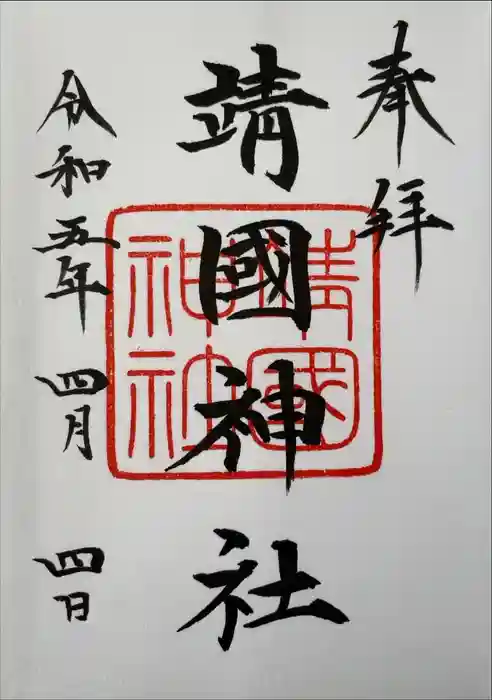 奉拝
靖國神社
靖國
神社
令和五年四月四日